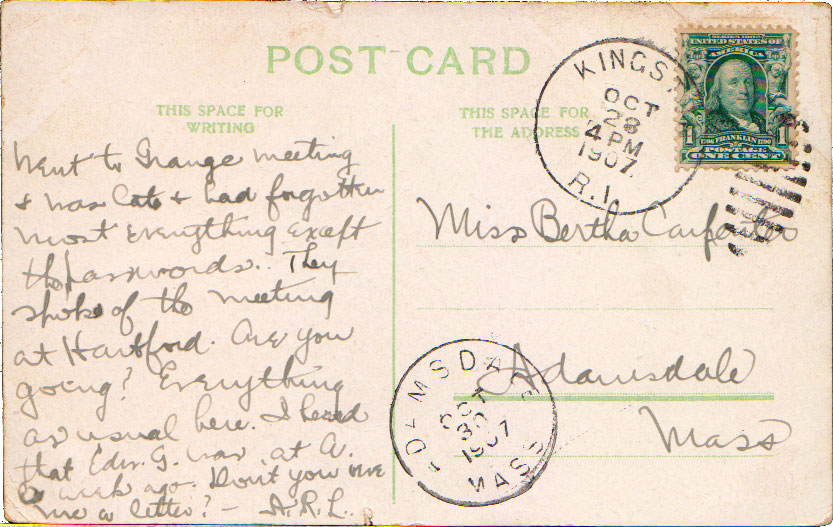 POST CARD
THIS SPACE FOR
WRITING
Went to Grange meeting
& was late & had forgotten
most everything except
the passwords. They
spoke of the meeting
at Hartford. Are you
going? Everything
as usual here. I heard
that Edw. G. was at A.
a week ago. Don't you owe
me a letter? – A.R.L.
THIS SPACE FOR
THE ADDRESS
KINGST
OCT
28
4 PM
1907
R.I.
SERIES 1902
UNITED STATES OF
AMERICA
1 FRANKLIN 1
POSTAGE
ONE CENT
Miss Bertha Carpenter
Adamsdale
Mass
ADAMSDALE
OCT
30
1907
MASS